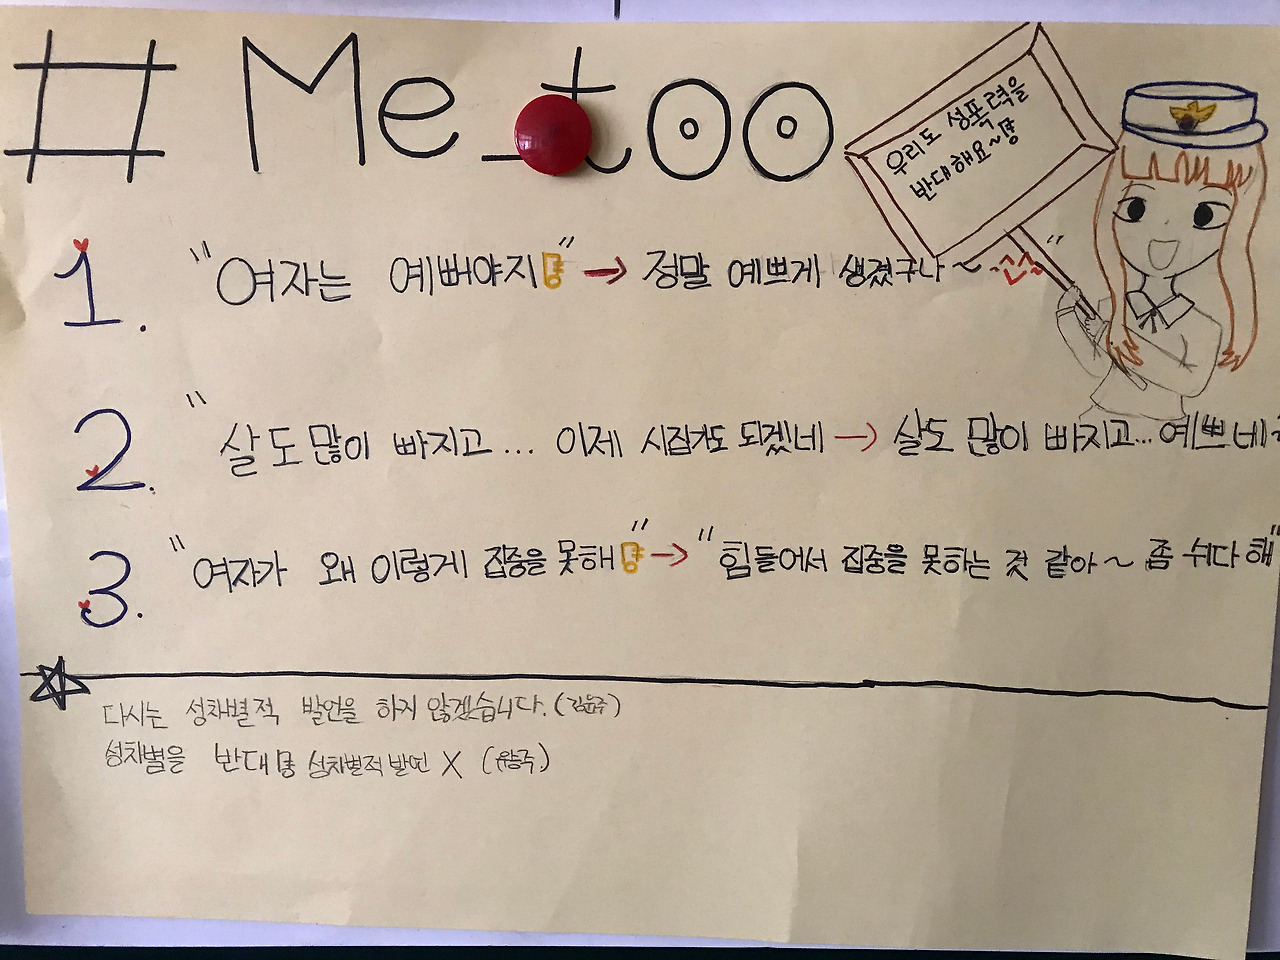 # Me_too
우리도 성폭력을
반대해요~!
1. "여자는 예뻐야지!" → 정말 예쁘게 생겼구나~ "
2. "살도 많이 빠지고... 이제 시집가도 되겠네 → 살도 많이 빠지고... 예쁘네~
3. "여자가 왜 이렇게 집중을 못해!" → "힘들어서 집중을 못하는 것 같아~ 좀 쉬다 해"
다시는 성차별적 발언을 하지 않겠습니다. (김윤주)
성차별을 반대! 성차별적 발언 X